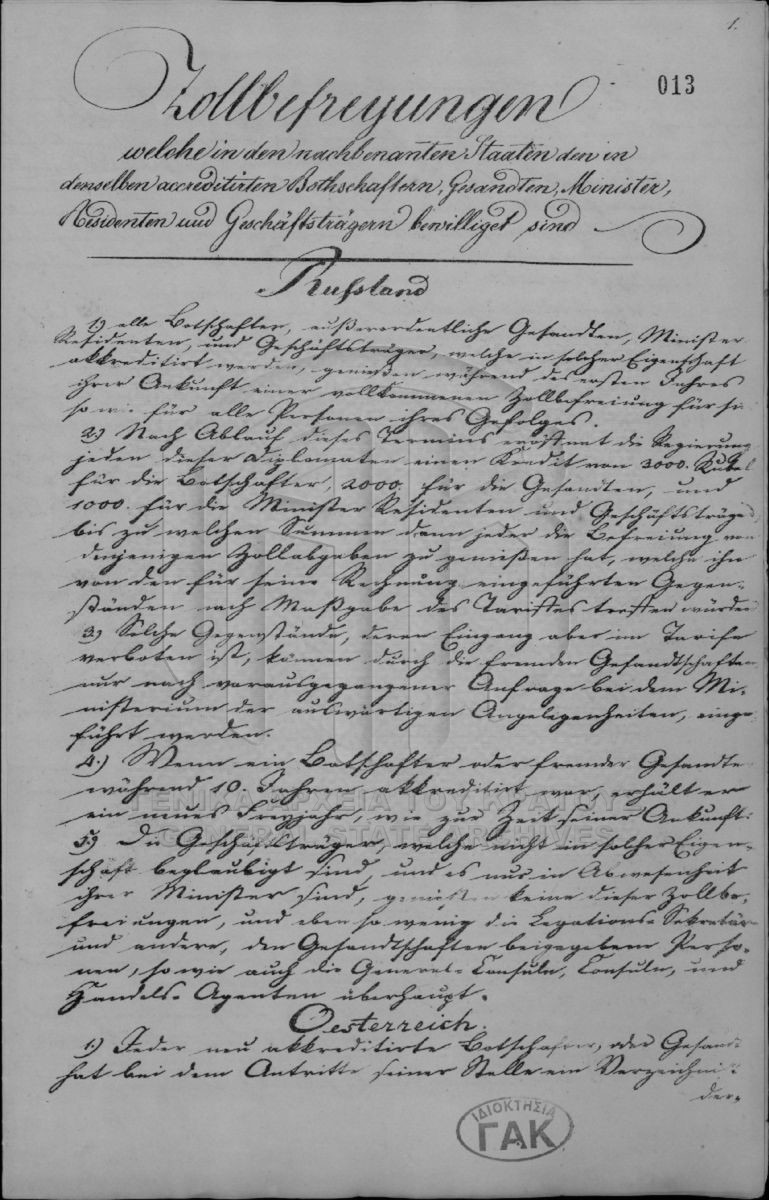 1.
013
Zollbefreyungen
welche in den nachbenanten Staaten den in
denselben accreditirten Bothschaftern, Gesandten, Minister,
Residenten und Geschäftsträgern bewilliget sind
Rußland
1.) alle Botschafter, außerordentliche Gesandten, Minister
Residenten, und Geschäftsträger, welche in solcher Eigenschaft
akkreditirt werden, genießen während des ersten Jahres
ihrer Ankunft einer vollkommenen Zollbefreiung für sie
so wie für alle Personen ihres Gefolges.
2.) Nach Ablauf dieses Termins eröffnet die Regierung
jeden dieser Diplomaten einen Kredit von 3000. Rubel
für die Botschafter, 2000. für die Gesandten, und
1000. für die Minister Residenten und Geschäftsträger
bis zu welchen Summen dann jeder die Befreiung von
denjenigen Zollabgaben zu genießen hat, welche ihn
von den für seine Rechnung eingeführten Gegen-
ständen nach Maßgabe des Tariffes treffen würden
3.) Solche Gegenstände, deren Eingang aber im Tarife
verboten ist, können durch die fremden Gesandtschaften
nur nach vorausgegangener Anfrage bei dem Mi-
nisterium der auswärtigen Angelegenheiten, einge-
führt werden.
4.) Wenn ein Botschafter oder fremder Gesandte
während 10. Jahren akkreditirt war, erhält er
ein neues Freyjahr, wie zur Zeit seiner Ankunft.
5.) Die Geschäftsträger, welche nicht in solcher Eigen-
schaft beglaubigt sind, und es nur in Abwesenheit
ihrer Minister sind, genießen keine dieser Zollbe-
freiungen, und eben so wenig die Legations-Sekretär
und andere, den Gesandtschaften beigegebenen Perso-
nen, so wie auch die General-Consuln, Consuln, und
Handels-Agenten überhaupt.
Oesterreich.
1.) Jeder neu akkreditirte Botschafter, oder Gesandte
hat bei dem Antritte seiner Stelle ein Verzeichniß
der-
ΓΕΝΙΚΑ ΑΡΧΕΙΑ ΤΟΥ ΚΡΑΤΟΥΣ
GENERAL STATE ARCHIVES
ΙΔΙΟΚΤΗΣΙΑ
ΓΑΚ